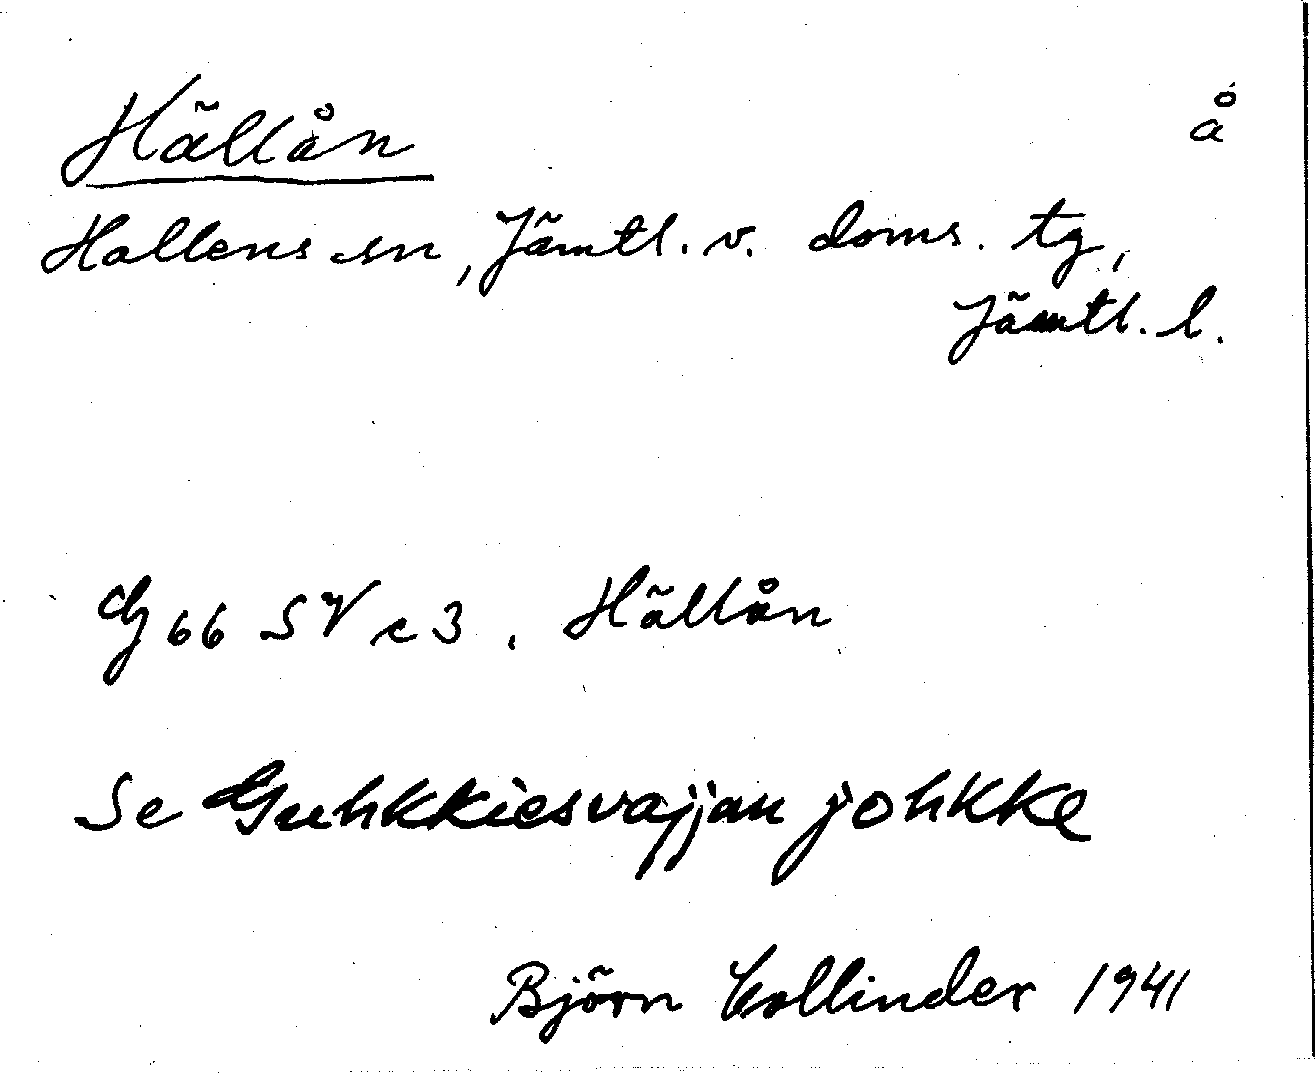 Hällån å
Hallens sn, Jämtl. v. doms. tg,
Jämtl. l.
G 66 SV c 3. Hällån
Se Guhkkiesvajjan johkke
Björn Collinder 1941